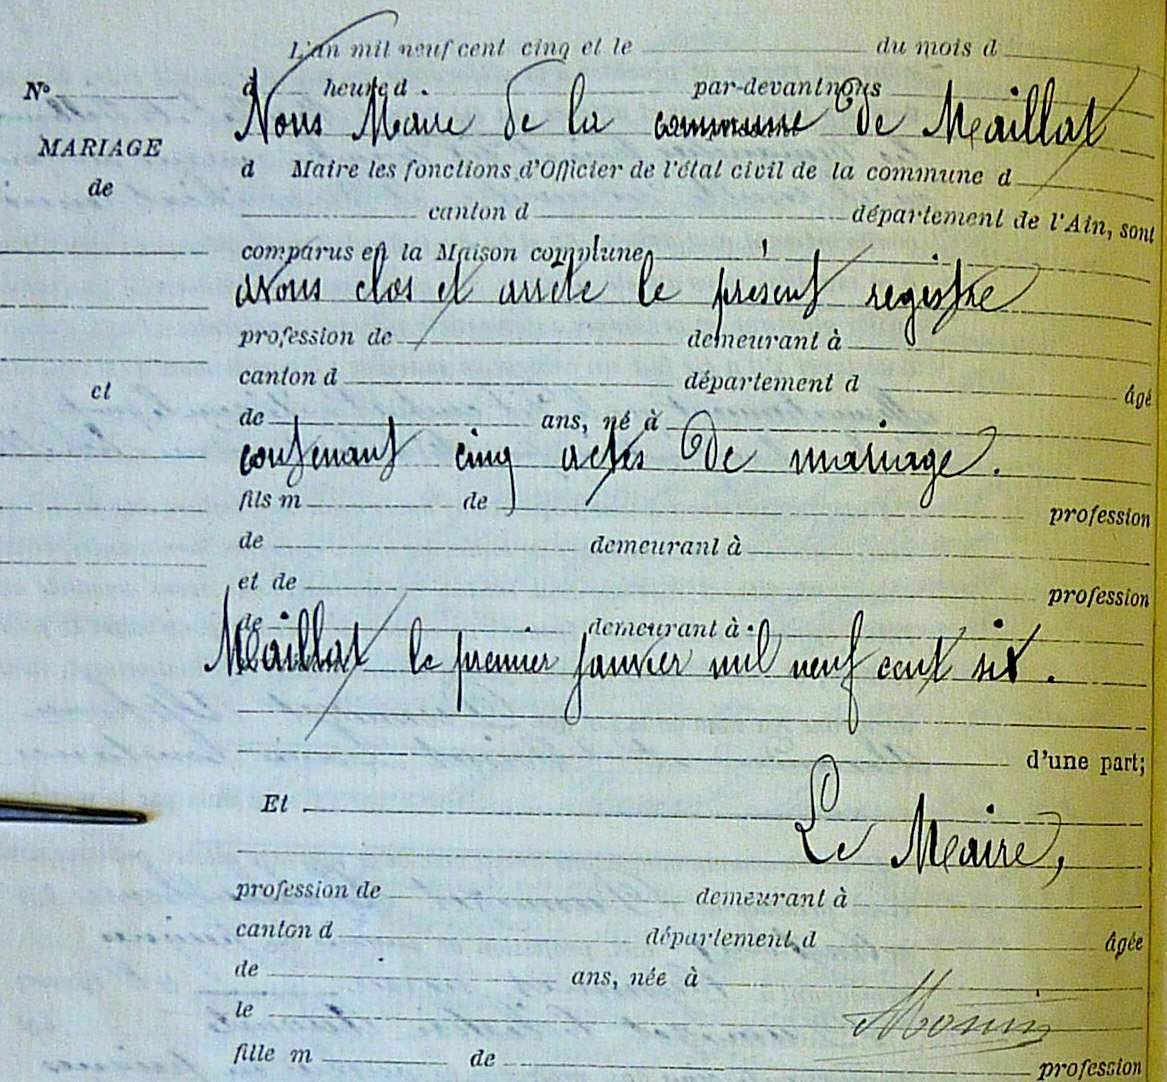 L'an mil neuf cent cinq et le du mois d
N° d heure d par-devant nous
Nous Maire de la commune de Maillat
MARIAGE
d Maire les fonctions d'Officier de l'état civil de la commune d
de
canton d département de l'Ain, sont
comparus en la Maison commune
avons clos et arrêté le présent registre
profession de demeurant à
et
canton d département d âgé
de ans, né à
contenant cinq actes de mariage.
fils m de profession
de demeurant à
et de profession
de demeurant à
Maillat le premier janvier mil neuf cent six.
d'une part;
Et
Le Maire,
profession de demeurant à
canton d département d âgée
de ans, née à
le
fille m de profession